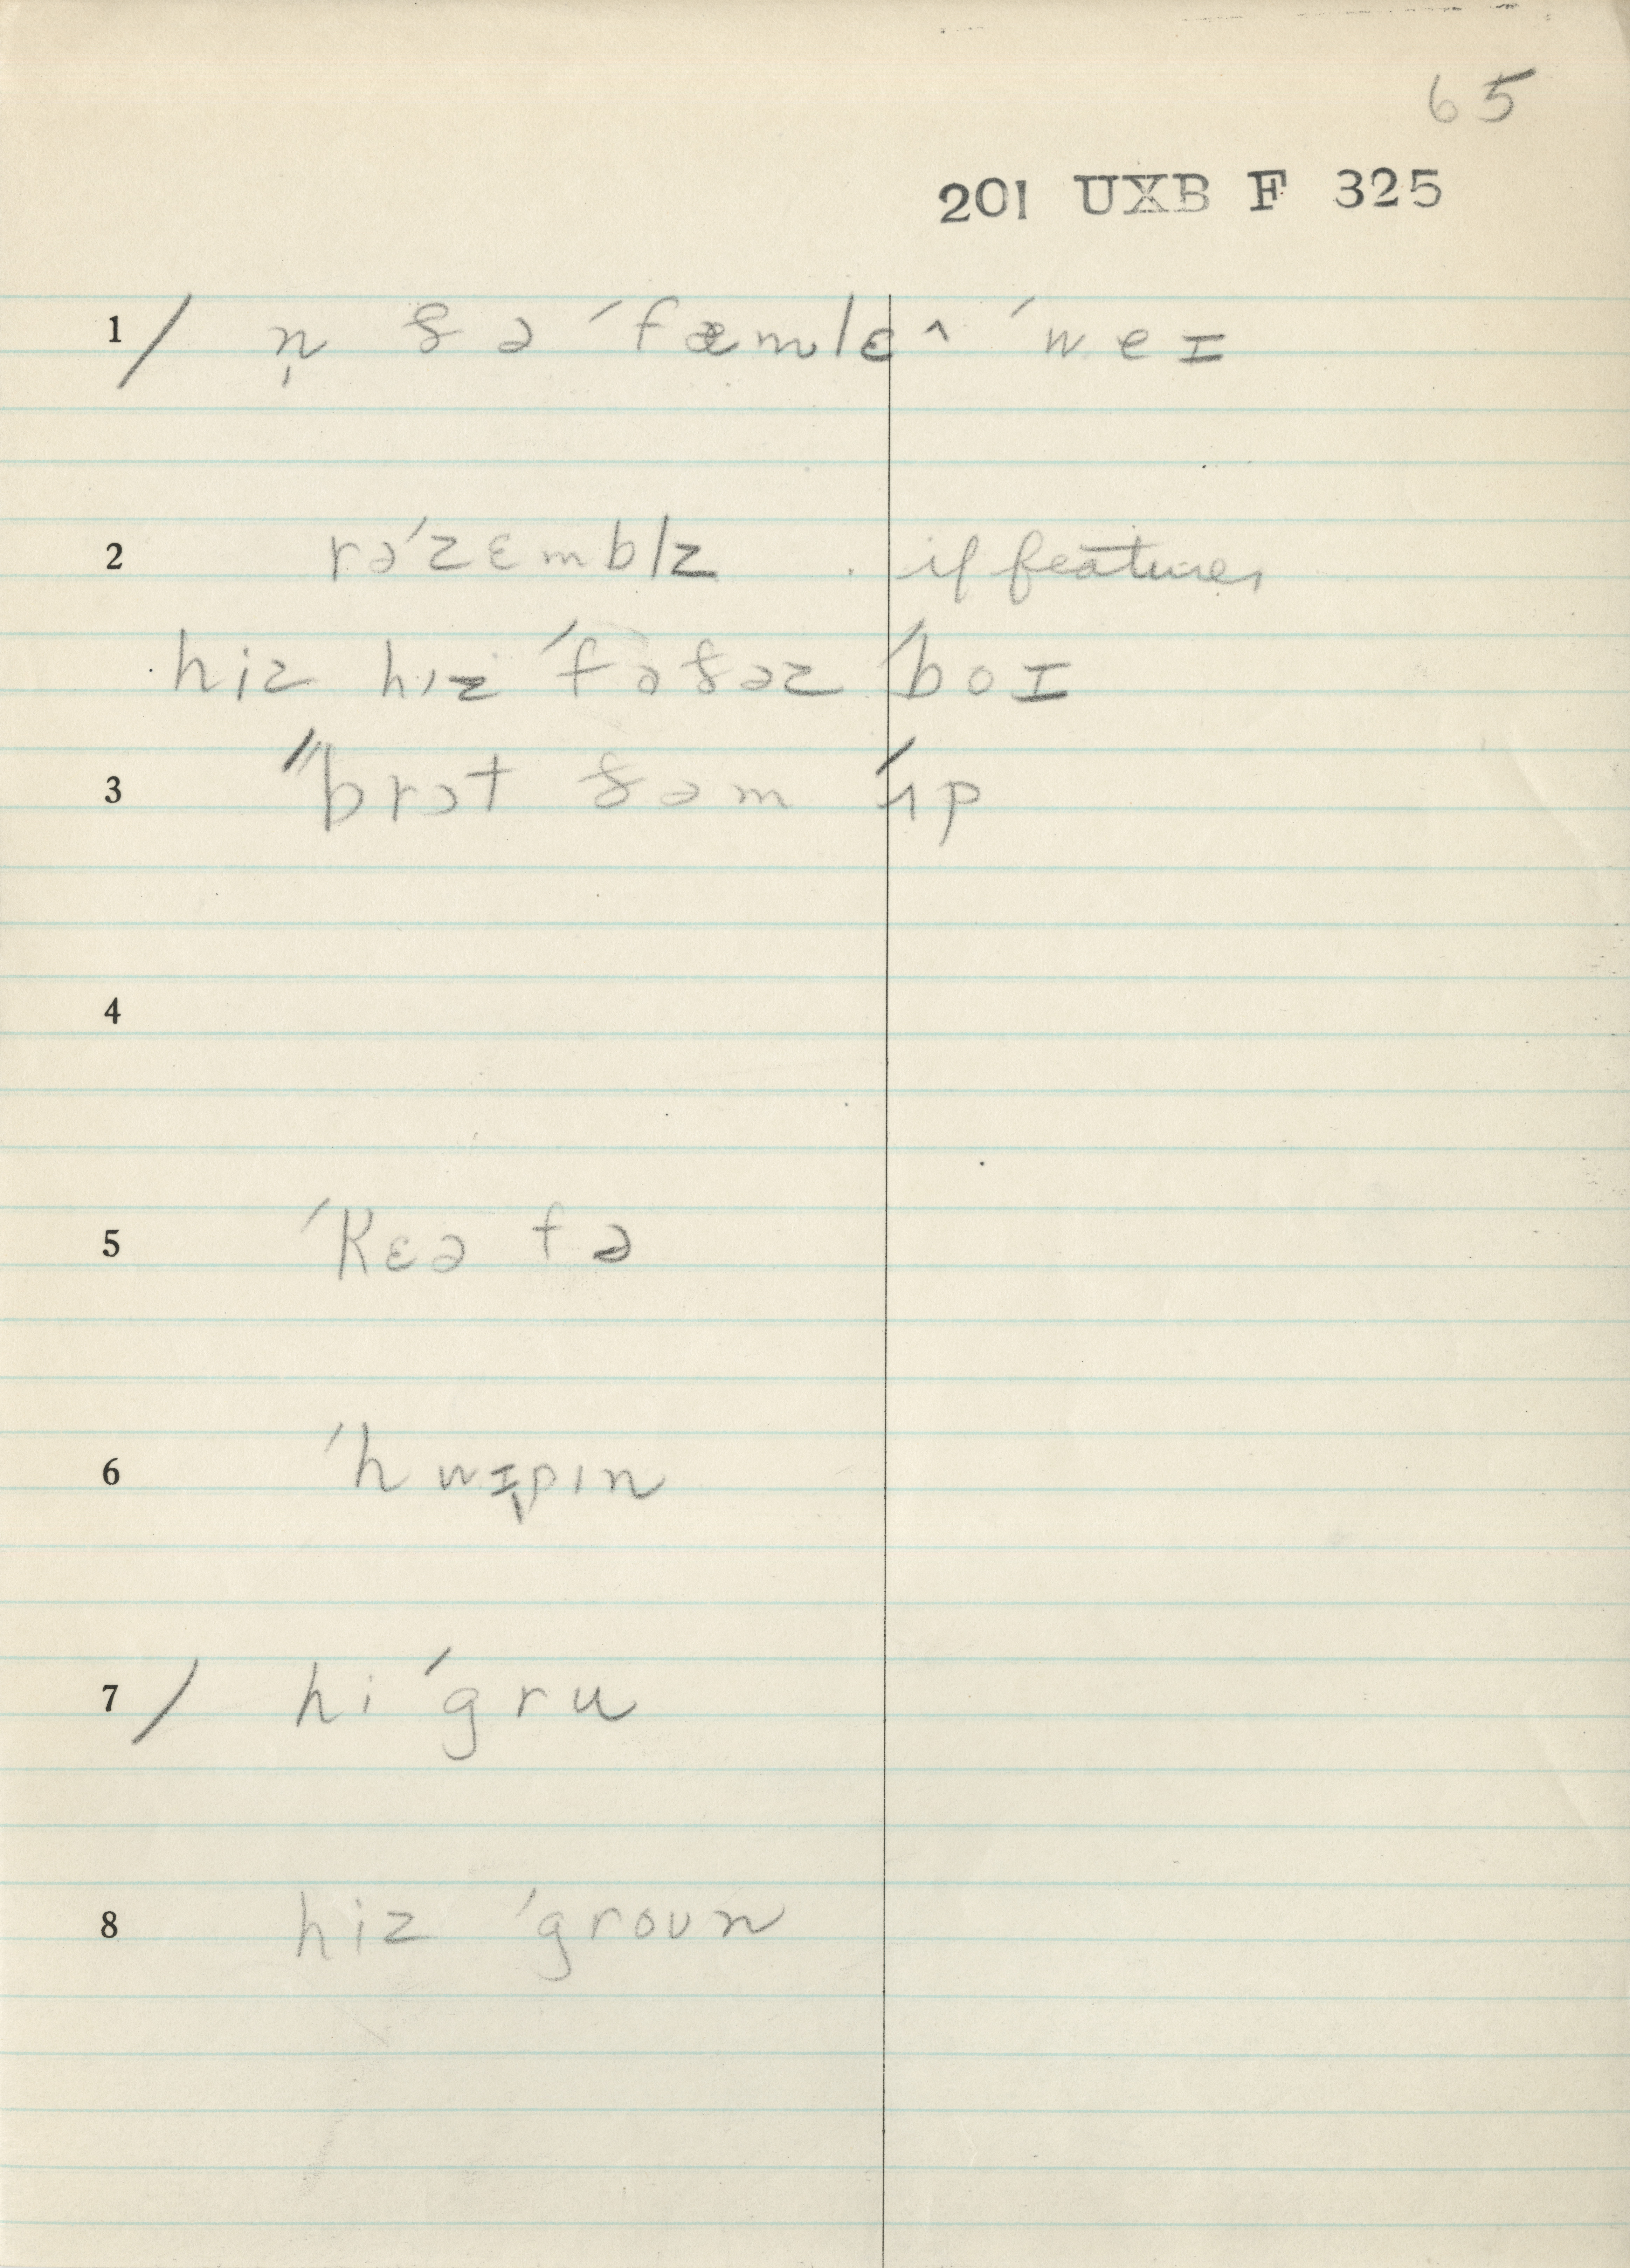 65
201 UXB F 325
1/ n̩ ðə ˈfæmlɛ^ ˈweɪ
2 rəˈzɛmblz . if features
hiz hɪz ˈfəðəz ˈboɪ
3 ˈˈbrɔt ðəm ˈʌp
4
5 ˈkɛə fə
6 ˈhwɪpɪn
7/ hi ˈgru
8 hiz ˈgroʊn